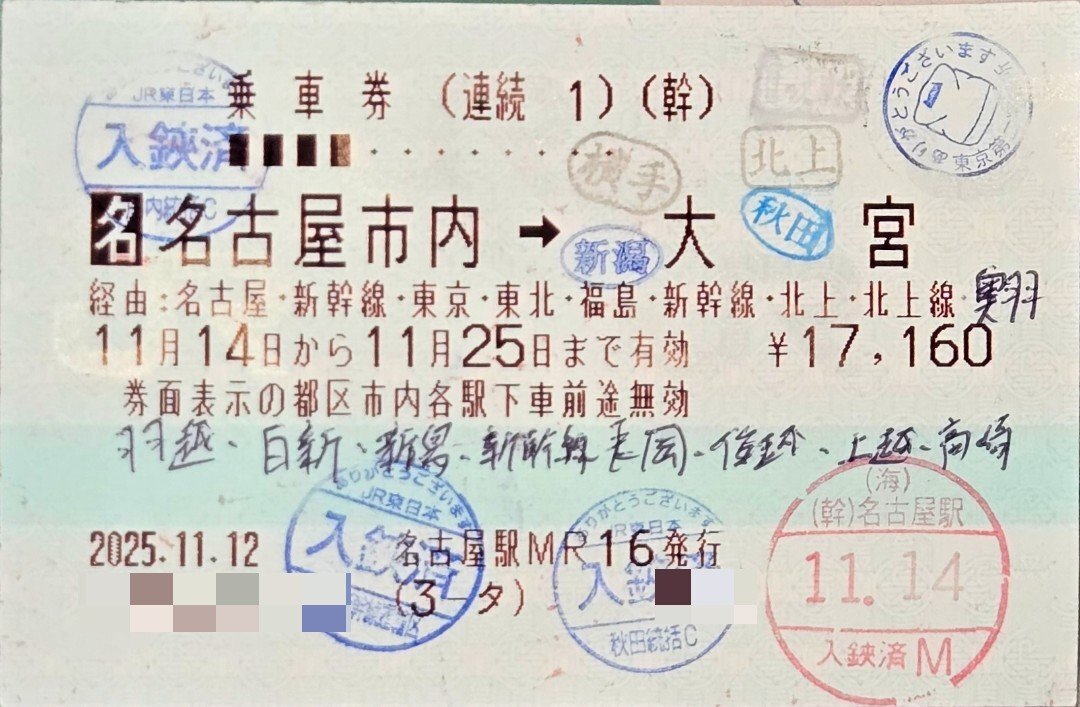 乗車券 (連続 1) (幹)
名 名古屋市内 → 大宮
経由:名古屋・新幹線・東京・東北・福島・新幹線・北上・北上線・奥羽
11月14日から11月25日まで有効 ¥17,160
券面表示の都区市内各駅下車前途無効
羽越、白新、新潟、新幹線 長岡、信越、上越、高崎
2025.11.12 名古屋駅MR16発行
(3-タ)
ございます
JR東日本
入鋏済
内統括C
横手
北上
新潟
秋田
ありがとうございます
東京第
ありがとうございます
JR東日本
入鋏済
ありがとうございます
JR東日本
入鋏
秋田統括C
(海)
(幹)名古屋駅
11.14
入鋏済 M